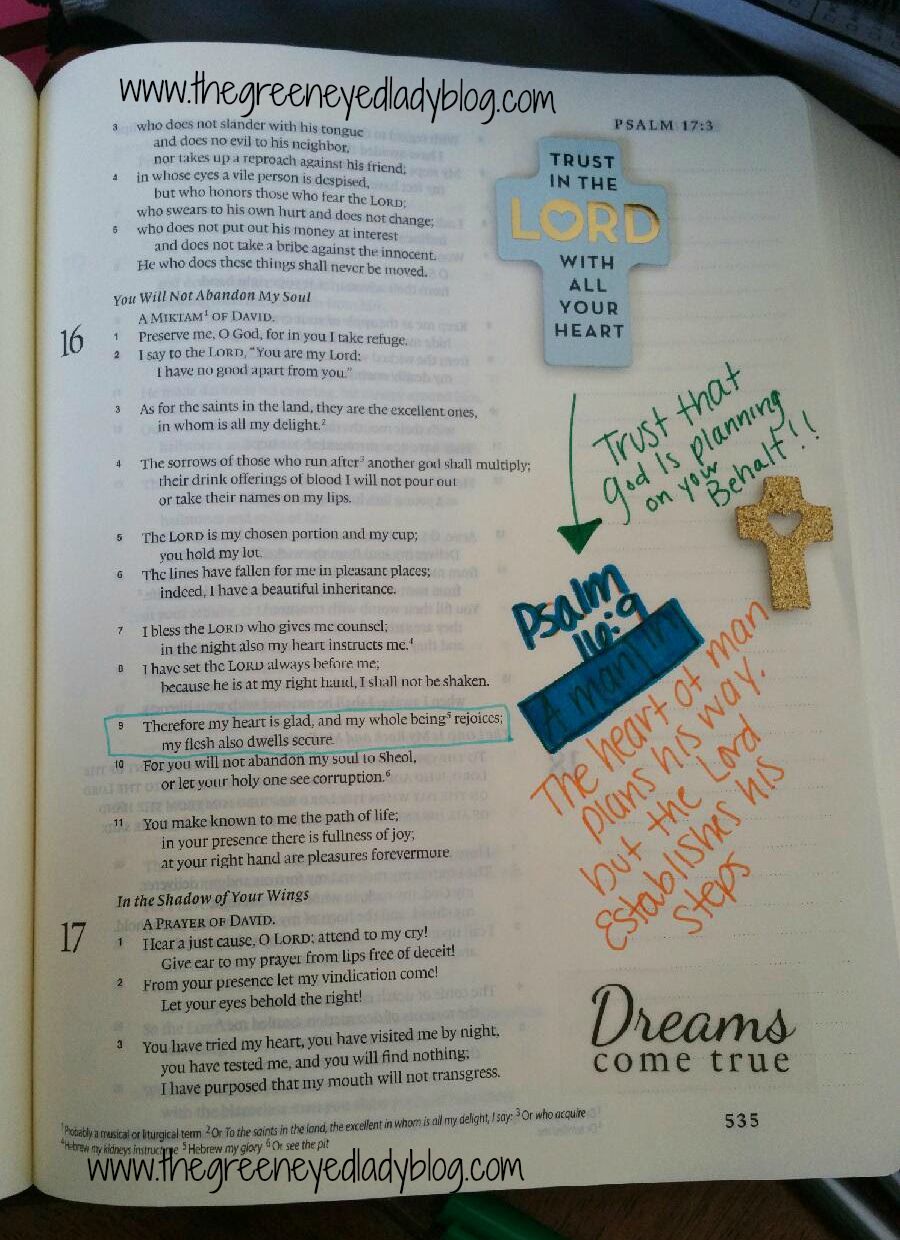 www.thegreeneyedladyblog.com
PSALM 17:3
3 who does not slander with his tongue
and does no evil to his neighbor,
nor takes up a reproach against his friend;
4 in whose eyes a vile person is despised,
but who honors those who fear the LORD;
who swears to his own hurt and does not change;
5 who does not put out his money at interest
and does not take a bribe against the innocent.
He who does these things shall never be moved.
You Will Not Abandon My Soul
16 A MIKTAM¹ OF DAVID.
1 Preserve me, O God, for in you I take refuge.
2 I say to the LORD, "You are my Lord;
I have no good apart from you."
3 As for the saints in the land, they are the excellent ones,
in whom is all my delight.²
4 The sorrows of those who run after³ another god shall multiply;
their drink offerings of blood I will not pour out
or take their names on my lips.
5 The LORD is my chosen portion and my cup;
you hold my lot.
6 The lines have fallen for me in pleasant places;
indeed, I have a beautiful inheritance.
7 I bless the LORD who gives me counsel;
in the night also my heart instructs me.⁴
8 I have set the LORD always before me;
because he is at my right hand, I shall not be shaken.
9 Therefore my heart is glad, and my whole being⁵ rejoices;
my flesh also dwells secure.
10 For you will not abandon my soul to Sheol,
or let your holy one see corruption.⁶
11 You make known to me the path of life;
in your presence there is fullness of joy;
at your right hand are pleasures forevermore.
In the Shadow of Your Wings
17 A PRAYER OF DAVID.
1 Hear a just cause, O LORD; attend to my cry!
Give ear to my prayer from lips free of deceit!
2 From your presence let my vindication come!
Let your eyes behold the right!
3 You have tried my heart, you have visited me by night,
you have tested me, and you will find nothing;
I have purposed that my mouth will not transgress.
¹Probably a musical or liturgical term ²Or To the saints in the land, the excellent in whom is all my delight, I say: ³Or who acquire
⁴Hebrew my kidneys instruct me ⁵Hebrew my glory ⁶Or see the pit
TRUST
IN THE
LORD
WITH
ALL
YOUR
HEART
Trust that
God is planning
on your
Behalf!!
Psalm
16:9
A man
The heart of man
plans his way.
but the Lord
Establishes his
steps
Dreams
come true
535
www.thegreeneyedladyblog.com